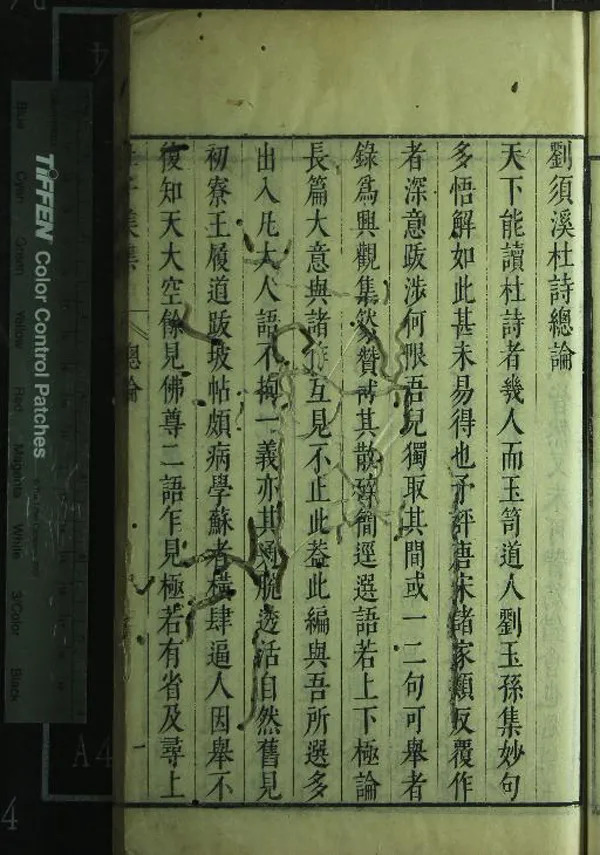 劉須溪杜詩總論
天下能讀杜詩者幾人而玉笥道人劉玉孫集妙句
多悟解如此甚未易得也予評唐宋諸家類反覆作
者深意跋涉何限吾兒獨取其間或一二句可舉者
錄爲興觀集然贊其散碎簡逕選語若上下極論
長篇大意與諸作互見不止此葢此編與吾所選多
出入凡大人語不拘一義亦其通脫透活自然舊見
初寮王履道跋坡帖頗病學蘇者橫肆逼人因舉不
復知天大空餘見佛尊二語乍見極若有省及尋上
杜子美集 總論 一
TIFFEN Color Control Patches
Blue Cyan Green Yellow Red Magenta White 3/Color Black
A4
4